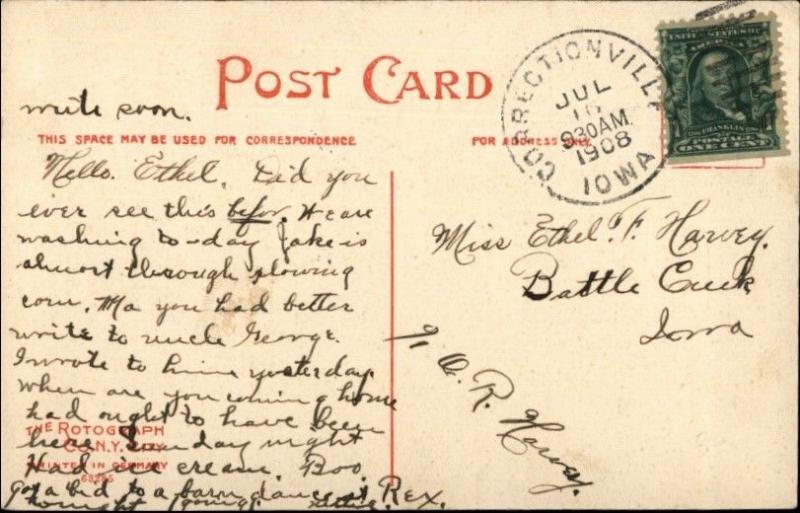 POST CARD
write soon.
THIS SPACE MAY BE USED FOR CORRESPONDENCE
FOR ADDRESS ONLY
CORRECTIONVILLE
JUL
930AM
1908
IOWA
UNITED STATES OF
AMERICA
FRANKLIN
POSTAGE
ONE CENT
Hello. Ethel. Did you
ever see this befor. We are
washing to-day Jake is
almost through plowing
corn. Ma you had better
write to uncle George.
I wrote to him yesterday
When are you coming home
had ought to have been
here Sunday night
Had ice cream. Boo
Got a bid to a barn dance
tonight going. Rex.
THE ROTOGRAPH
CO. N.Y. CITY
PRINTED IN GERMANY
Miss Ethel. F. Harvey.
Battle Creek
Iowa
c/o O. R. Harvey.